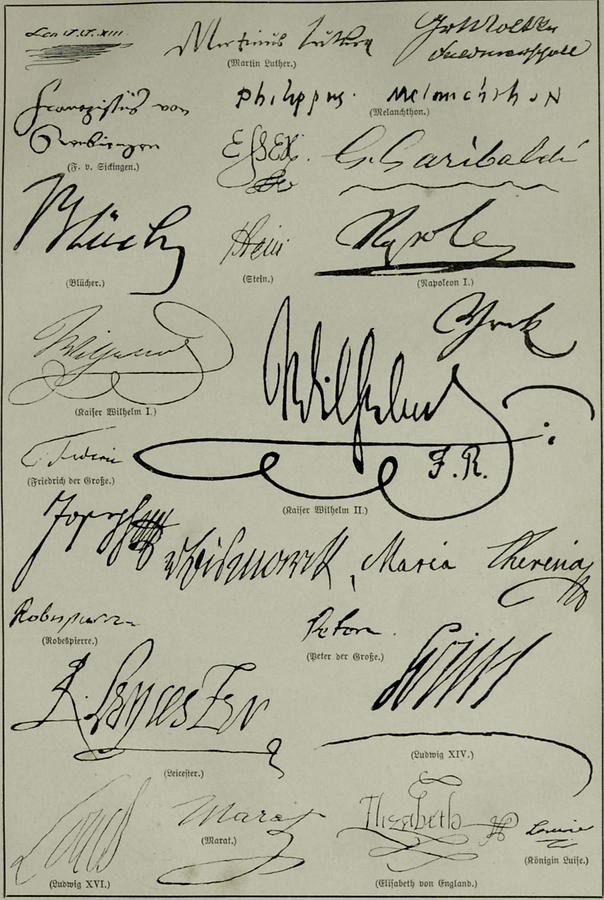 Leo P.P. XIII.
Martinus Luther
(Martin Luther.)
Gr Moltke
Feldmarschall
Franciscus von
(F. v. Sickingen.)
Philippus Melanchthon
(Melanchthon.)
Essex.
G. Garibaldi
Blücher
(Blücher.)
Stein
(Stein.)
Napole
(Napoleon I.)
Wilhelm
(Kaiser Wilhelm I.)
York
Wilhelm
I. R.
(Kaiser Wilhelm II.)
Federic
(Friedrich der Große.)
Joseph
v Bismarck
Maria Theresia
Robespierre
(Robespierre.)
(Peter der Große.)
R. Leycester
(Leicester.)
Louis
(Ludwig XIV.)
Louis
(Ludwig XVI.)
Marat
(Marat.)
Elizabeth R
(Elisabeth von England.)
Louise
(Königin Luise.)